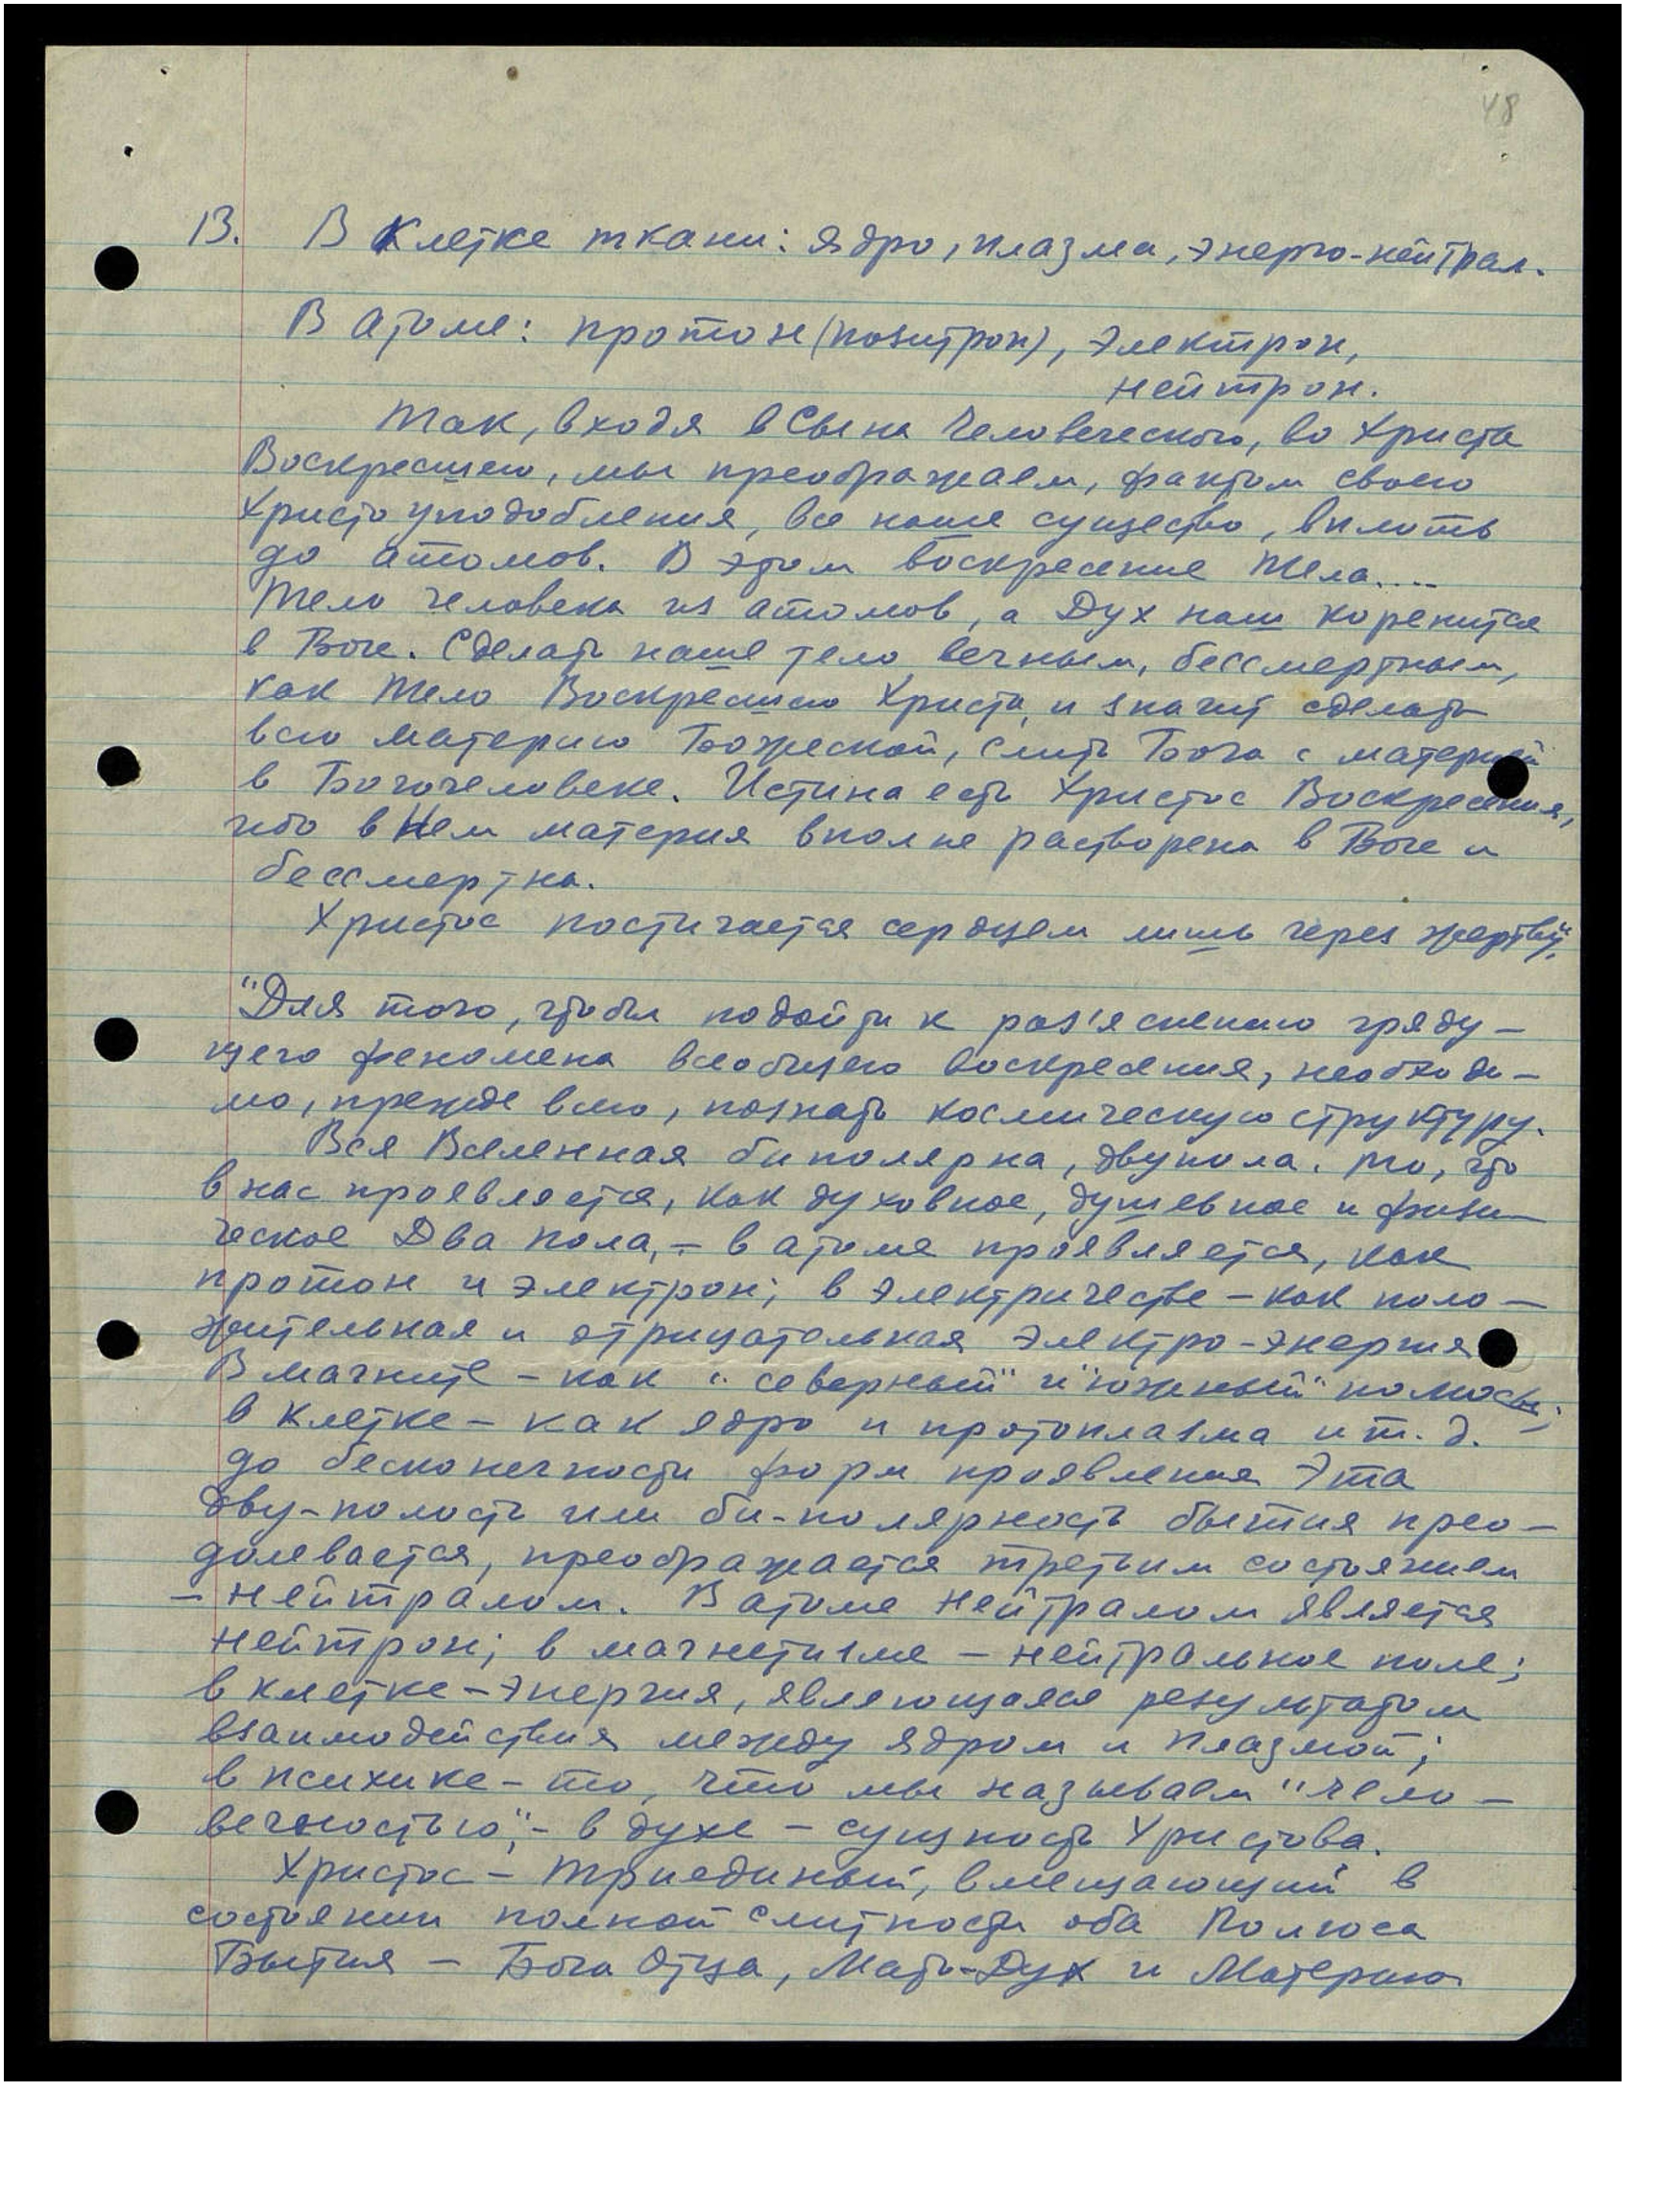 48
13. В Клетке ткани: ядро, плазма, энерго-нейтрал.
В атоме: протон (позитрон), электрон,
нейтрон.
Так, входя в Сына Человеческого, во Христа
Воскресшего, мы преображаем, фактом своего
Христоуподобления, все наше существо, вплоть
до атомов. В этом воскресение тела....
Тело человека из атомов, а Дух наш коренится
в Боге. Сделать наше тело вечным, бессмертным,
как тело Воскресшего Христа, и значит сделать
всю материю Божеской, слить Бога с материей
в Богочеловеке. Истина есть Христос Воскресения,
ибо в Нем материя вполне растворена в Боге и
бессмертна.
Христос постигается сердцем лишь через жертву."
"Для того, чтобы подойти к раз'яснению гряду-
щего феномена всеобщего воскресения, необходи-
мо, прежде всего, познать космическую структуру.
Вся Вселенная биполярна, двупола. То, что
в нас проявляется, как духовное, душевное и физи-
ческое Два пола, - в атоме проявляется, как
протон и электрон; в электричестве - как поло-
жительная и отрицательная электро-энергия
В магните - как "северный" и "южный" полюсы;
в клетке - как ядро и протоплазма и т. д.
до бесконечности форм проявления Эта
дву-полость или би-полярность бытия прео-
долевается, преображается третьим состоянием
- нейтралом. В атоме нейтралом является
нейтрон; в магнетизме - нейтральное поле;
в клетке - энергия, являющаяся результатом
взаимодействия между ядром и плазмой;
в психике - то, что мы называем "чело-
вечностью", - в духе - сущность Христова.
Христос - триединый, вмещающий в
состоянии полной слитности оба Полюса
Бытия - Бога Отца, Мать-Дух и Материю